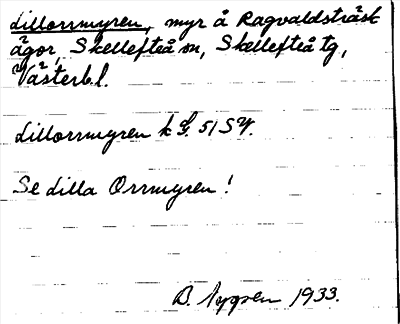 Lillorrmyren, myr å Ragvaldsträsk
ägor, Skellefteå sn, Skellefteå tg,
Västerb.l.
Lillorrmyren k G. 51 SV.
Se Lilla Orrmyren!
B. Nygren 1933.